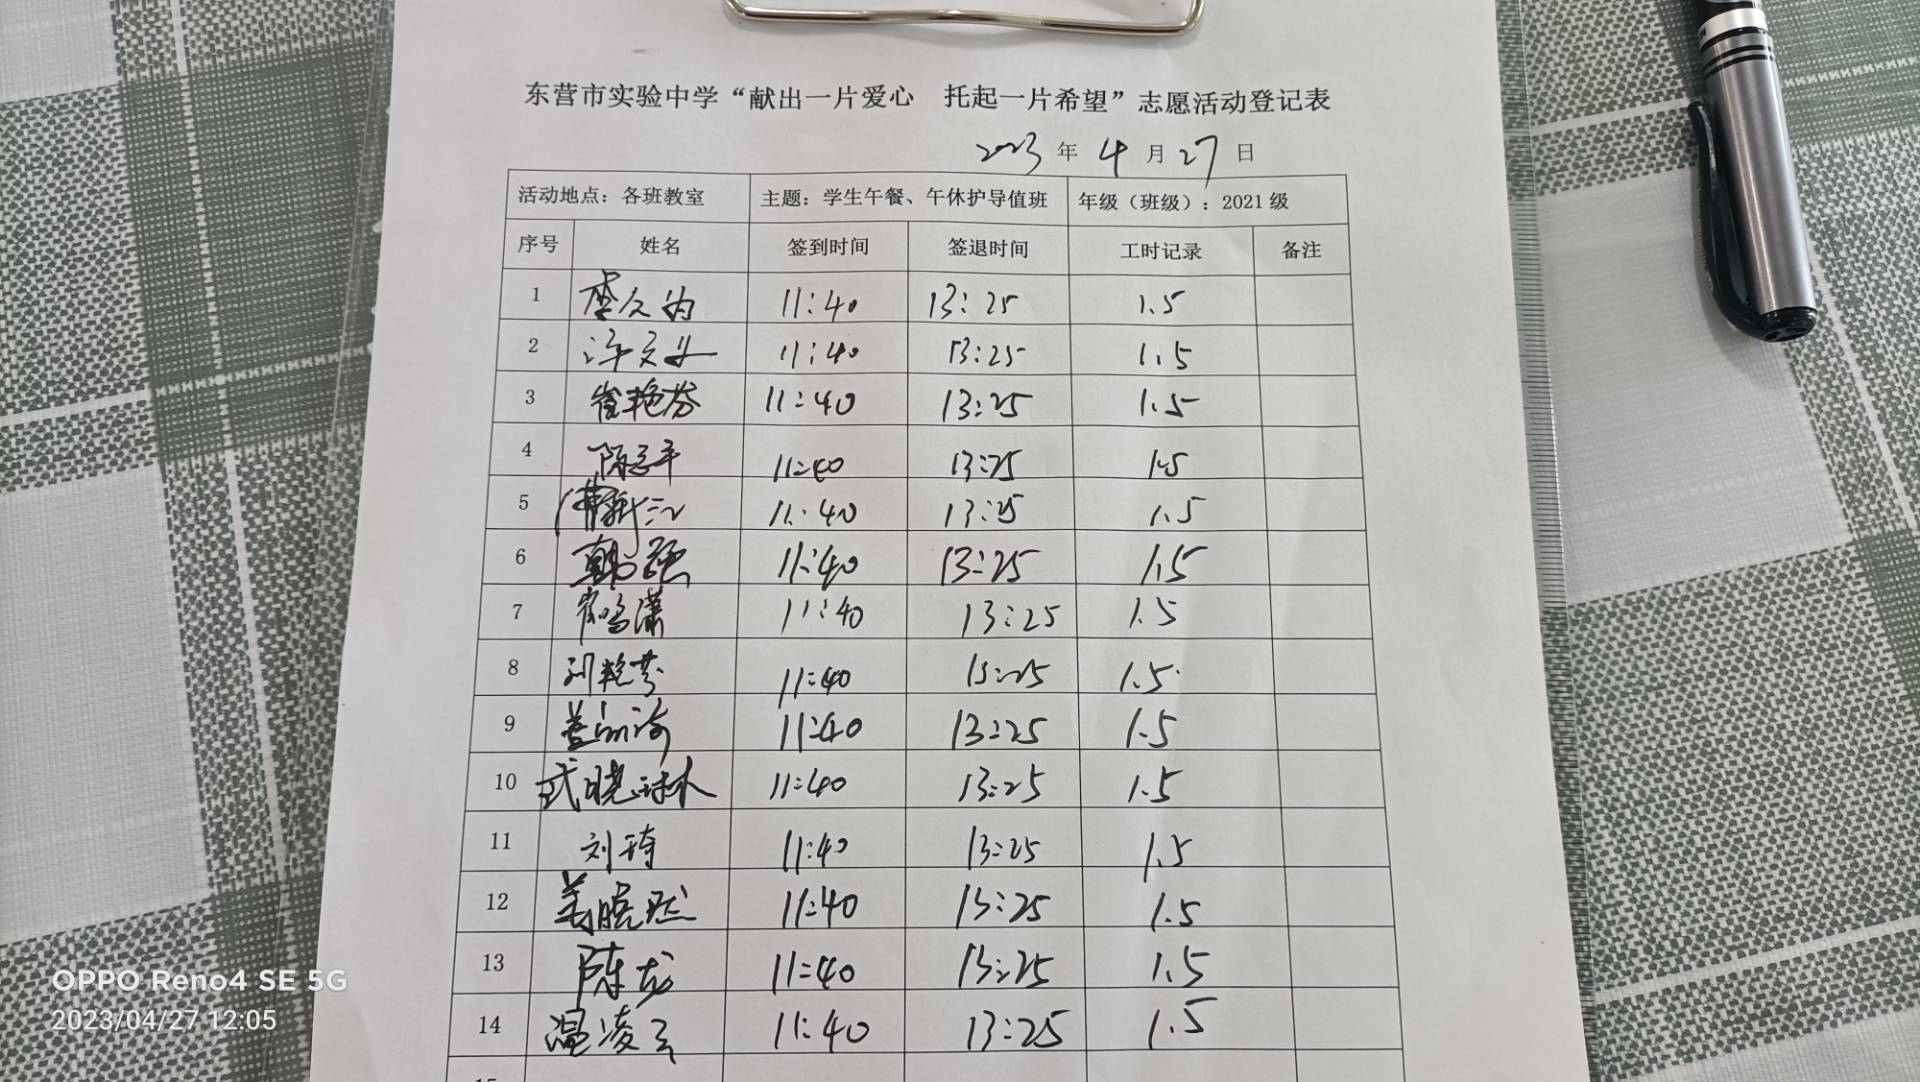 东营市实验中学“献出一片爱心 托起一片希望”志愿活动登记表
2023 年 4 月 27 日
活动地点：各班教室 主题：学生午餐、午休护导值班 年级（班级）：2021 级
序号 姓名 签到时间 签退时间 工时记录 备注
1 李久为 11:40 13:25 1.5
2 许文 11:40 13:25 1.5
3 崔艳芬 11:40 13:25 1.5
4 陈 平 11:40 13:25 1.5
5 11:40 13:25 1.5
6 韩强 11:40 13:25 1.5
7 鸣潇 11:40 13:25 1.5
8 刘艳芬 11:40 13:25 1.5
9 11:40 13:25 1.5
10 武晓 11:40 13:25 1.5
11 刘琦 11:40 13:25 1.5
12 姜晓然 11:40 13:25 1.5
13 陈龙 11:40 13:25 1.5
14 温凌云 11:40 13:25 1.5
OPPO Reno4 SE 5G
2023/04/27 12:05